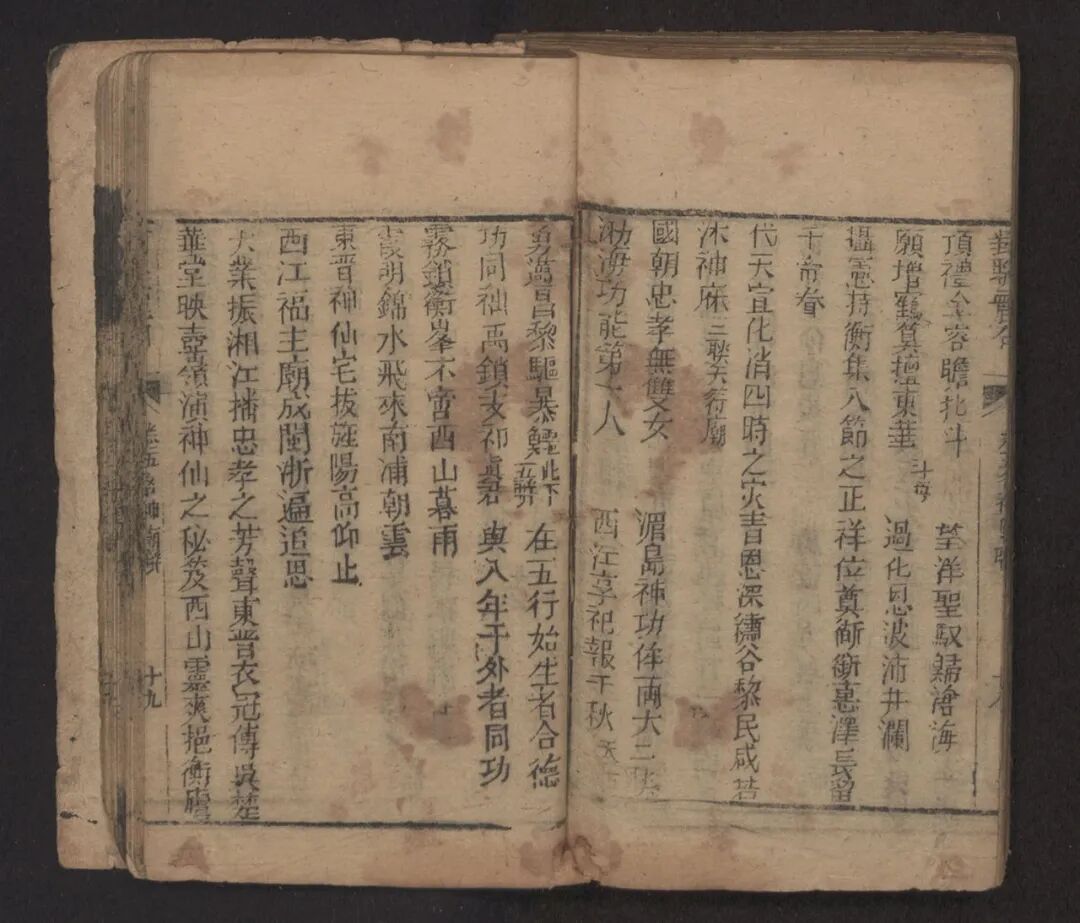 頂禮金容瞻北斗 望洋聖馭歸滄海
願增鶴算擅東華 斗母 過化恩波沛井瀾
攝憲持衡集八節之正祥位奠蘅衡惠澤長留
千帝眷
代天宣化消四時之灾眚恩深禱谷黎民咸若
沐神庥 三聯天符廟
國朝忠孝無雙女 湄島神功侔兩大
渤海功能第一人 西江享祀報千秋
勇邁昌黎驅暴鱷 此下五聯 在五行始生者合德
功同神禹鎖支祁 真君 與八年于外者同功
霧鎖衡峯不啻西山暮雨
霞明錦水飛來南浦朝雲
東晋神仙宅拔旌陽高仰止
西江福主廟成閩浙遍追思
大業振湘江播忠孝之芳聲東晋衣冠傳吳楚
華堂映壺嶺演神仙之秘笈西山靈爽挹衡廬
十九